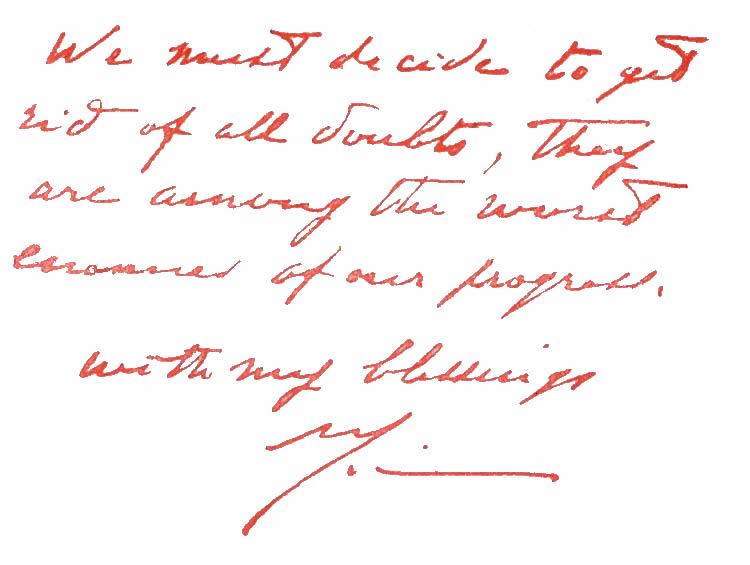 We must decide to get
rid of all doubts, they
are among the worst
enemies of our progress.
with my blessings